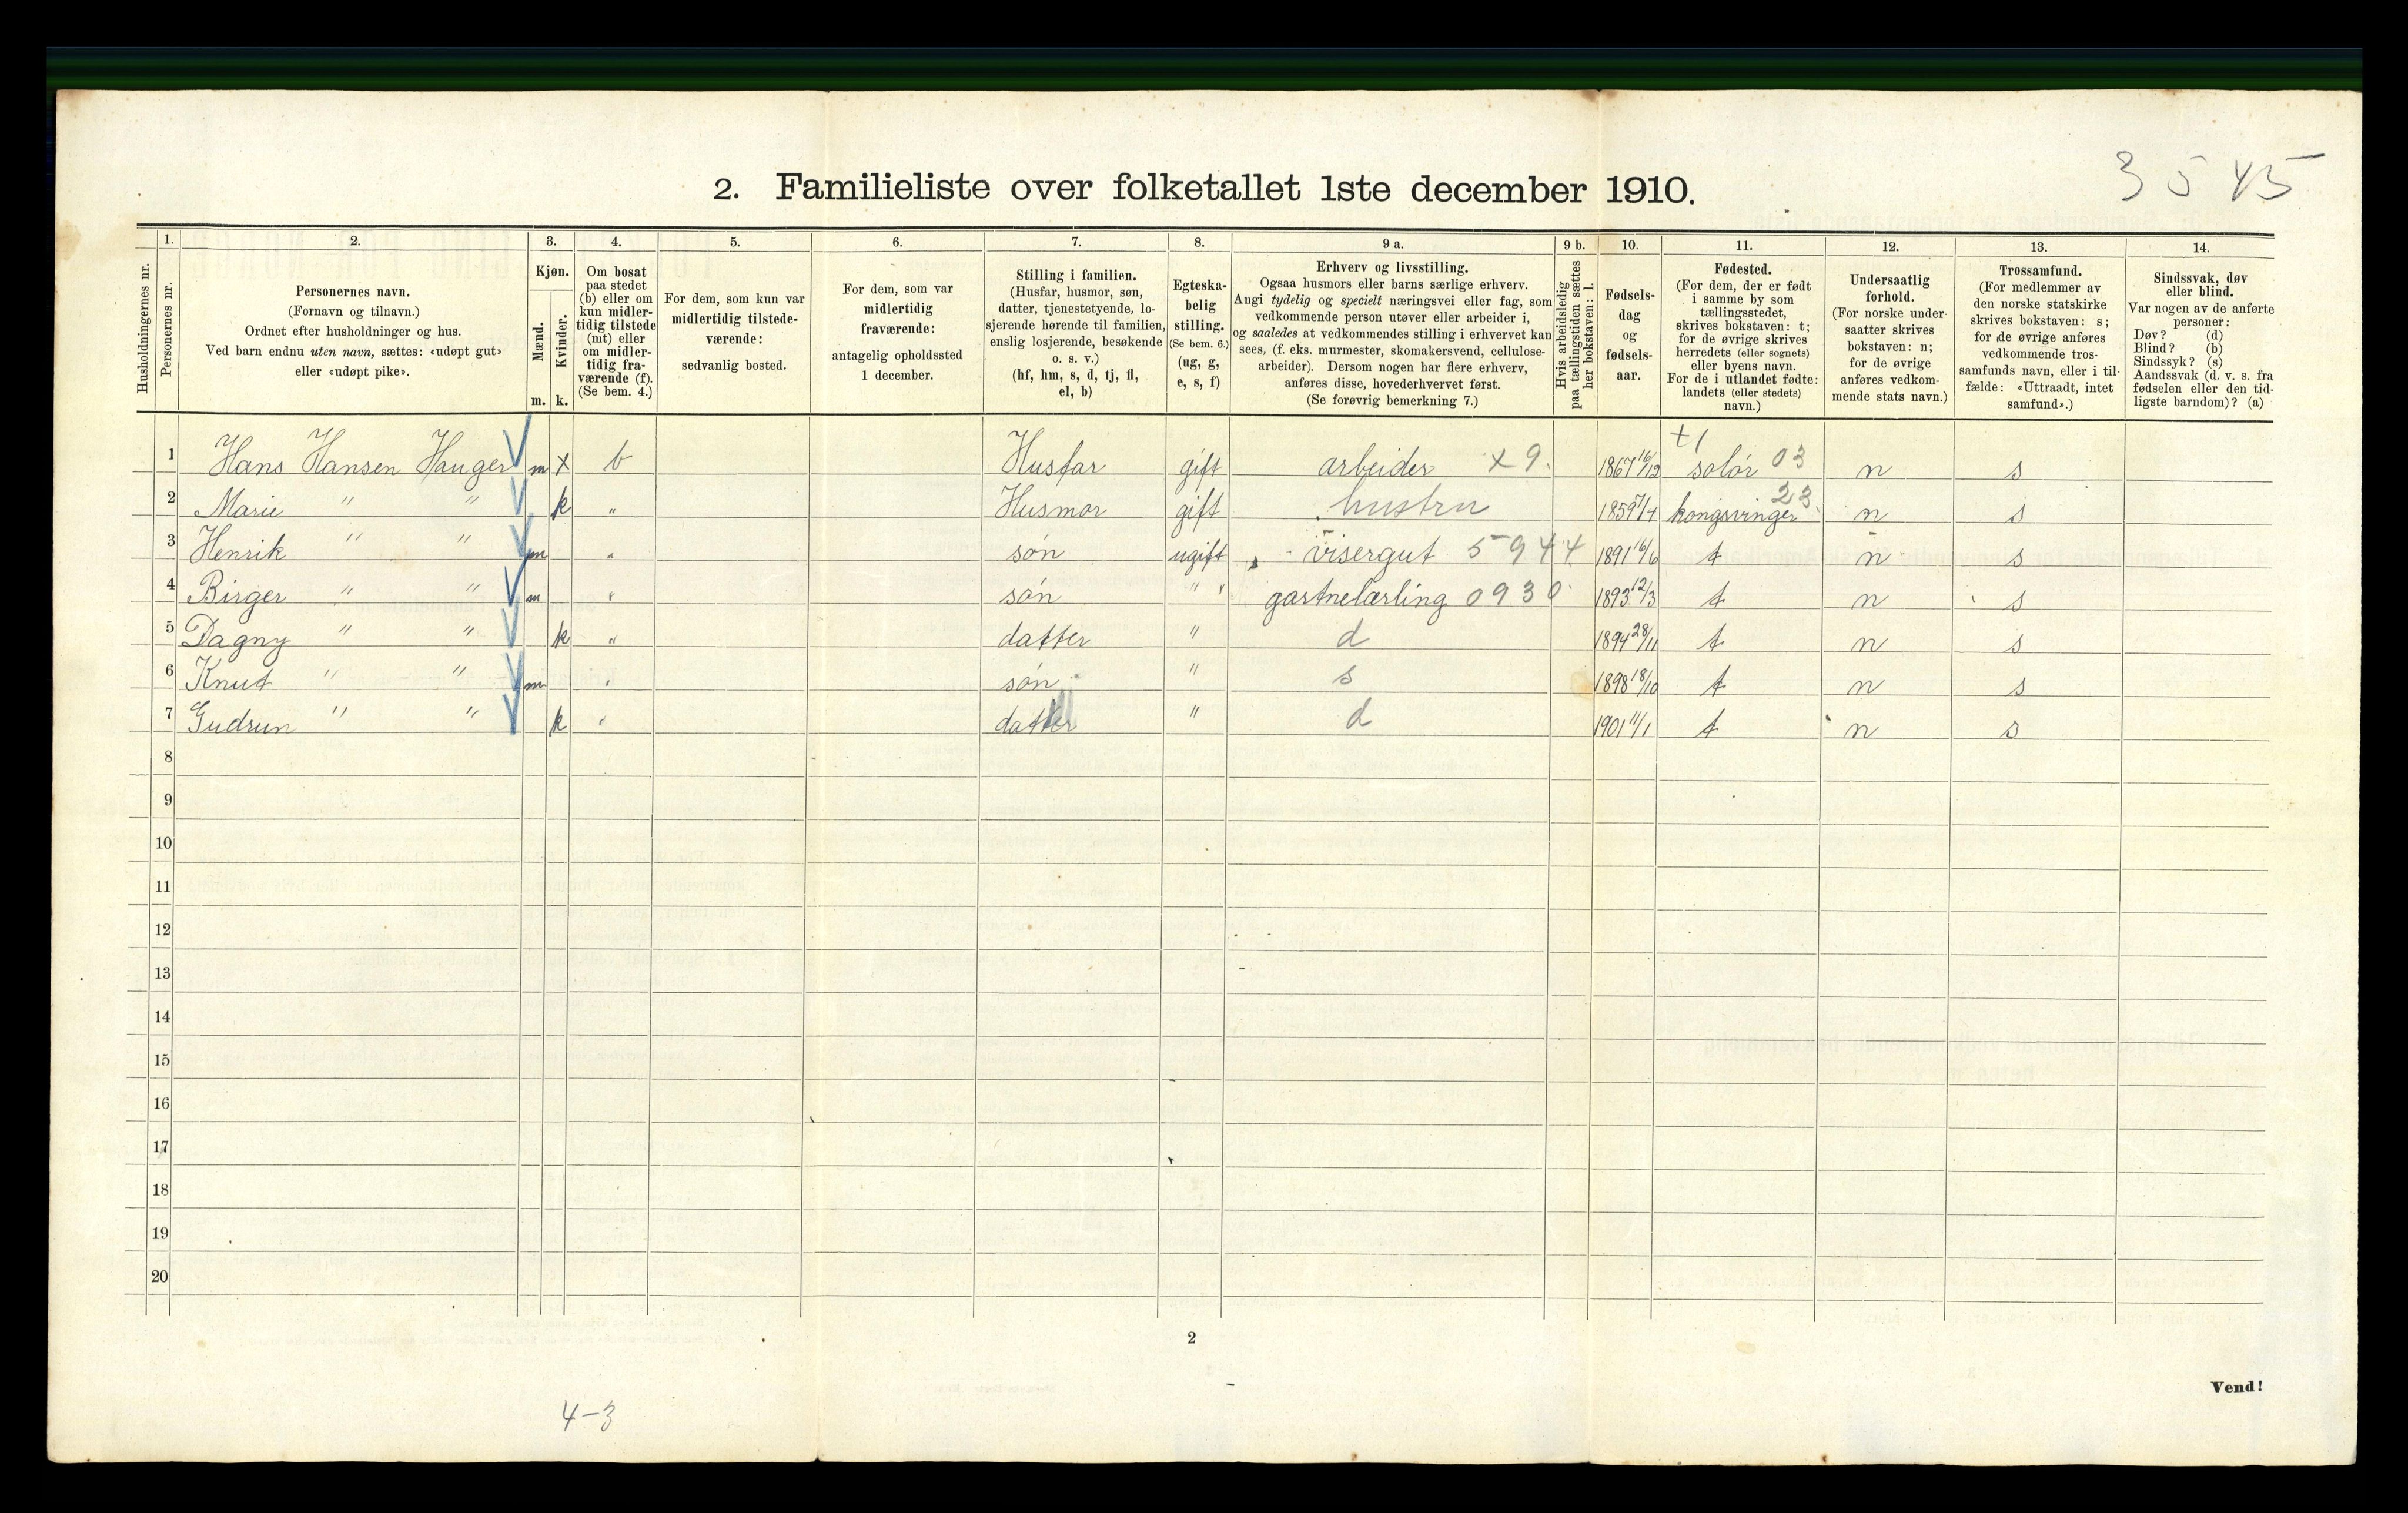 3 5 45
2. Familieliste over folketallet 1ste december 1910.
1. 2. 3. 4. 5. 6. 7. 8. 9 a. 9 b. 10. 11. 12. 13. 14.
Husholdningernes nr.
Personernes nr.
Personernes navn.
(Fornavn og tilnavn.)
Ordnet efter husholdninger og hus.
Ved barn endnu uten navn, sættes: «udøpt gut»
eller «udøpt pike».
Kjøn.
Mænd.
Kvinder.
m. k.
Om bosat
paa stedet
(b) eller om
kun midler-
tidig tilstede
(mt) eller
om midler-
tidig fra-
værende (f).
(Se bem. 4.)
For dem, som kun var
midlertidig tilstede-
værende:
sedvanlig bosted.
For dem, som var
midlertidig
fraværende:
antagelig opholdssted
1 december.
Stilling i familien.
(Husfar, husmor, søn,
datter, tjenestetyende, lo-
sjerende hørende til familien,
enslig losjerende, besøkende
o. s. v.)
(hf, hm, s, d, tj, fl,
el, b)
Egteska-
belig
stilling.
(Se bem. 6.)
(ug, g,
e, s, f)
Erhverv og livsstilling.
Ogsaa husmors eller barns særlige erhverv.
Angi tydelig og specielt næringsvei eller fag, som
vedkommende person utøver eller arbeider i,
og saaledes at vedkommendes stilling i erhvervet kan
sees, (f. eks. murmester, skomakersvend, cellulose-
arbeider). Dersom nogen har flere erhverv,
anføres disse, hovederhvervet først.
(Se forøvrig bemerkning 7.)
Hvis arbeidsledig
paa tællingstiden sættes
her bokstaven: l.
Fødsels-
dag
og
fødsels-
aar.
Fødested.
(For dem, der er født
i samme by som
tællingsstedet,
skrives bokstaven: t;
for de øvrige skrives
herredets (eller sognets)
eller byens navn.
For de i utlandet fødte:
landets (eller stedets)
navn.)
Undersaatlig
forhold.
(For norske under-
saatter skrives
bokstaven: n;
for de øvrige
anføres vedkom-
mende stats navn.)
Trossamfund.
(For medlemmer av
den norske statskirke
skrives bokstaven: s;
for de øvrige anføres
vedkommende tros-
samfunds navn, eller i til-
fælde: «Uttraadt, intet
samfund».)
Sindssvak, døv
eller blind.
Var nogen av de anførte
personer:
Døv? (d)
Blind? (b)
Sindssyk? (s)
Aandssvak (d. v. s. fra
fødselen eller den tid-
ligste barndom)? (a)
1 Hans Hansen Hauger m x b Husfar gift arbeider x 9. 1867 16/12 solør 03 n s
2 Marie " " k " Husmor gift hustru 1859 7/4 kongsvinger 23 n s
3 Henrik " " m " søn ugift visergut 5944 1891 16/6 t n s
4 Birger " " m " søn " gartnelærling 0930 1893 12/3 t n s
5 Dagny " " k " datter " d 1894 28/11 t n s
6 Knut " " m " søn " s 1898 18/10 t n s
7 Gudrun " " k " datter " d 1901 11/1 t n s
8
9
10
11
12
13
14
15
16
17
18
19
20
2
Vend!
4-3